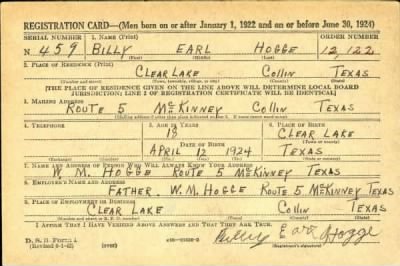 REGISTRATION CARD—(Men born on or after January 1, 1922 and on or before June 30, 1924)
SERIAL NUMBER 1. NAME (Print) ORDER NUMBER
N 459 BILLY EARL HOGGE 12,122
(First) (Middle) (Last)
2. PLACE OF RESIDENCE (Print)
CLEAR LAKE COLLIN TEXAS
(Number and street) (Town, township, village, or city) (County) (State)
[THE PLACE OF RESIDENCE GIVEN ON THE LINE ABOVE WILL DETERMINE LOCAL BOARD
JURISDICTION; LINE 2 OF REGISTRATION CERTIFICATE WILL BE IDENTICAL]
3. MAILING ADDRESS
ROUTE 5 McKINNEY COLLIN TEXAS
4. TELEPHONE 5. AGE IN YEARS 6. PLACE OF BIRTH
18 CLEAR LAKE
DATE OF BIRTH (Town or county)
APRIL 12 1924 TEXAS
(Mo.) (Day) (Yr.) (State or country)
7. NAME AND ADDRESS OF PERSON WHO WILL ALWAYS KNOW YOUR ADDRESS
W. M. HOGGE ROUTE 5 McKINNEY TEXAS
8. EMPLOYER'S NAME AND ADDRESS
FATHER. W. M. HOGGE ROUTE 5 McKINNEY TEXAS
9. PLACE OF EMPLOYMENT OR BUSINESS
CLEAR LAKE COLLIN TEXAS
(County) (State)
I AFFIRM THAT I HAVE VERIFIED ABOVE ANSWERS AND THAT THEY ARE TRUE.
D. S. S. Form 1 (over) Billy Earl Hogge
(Registrant's signature)